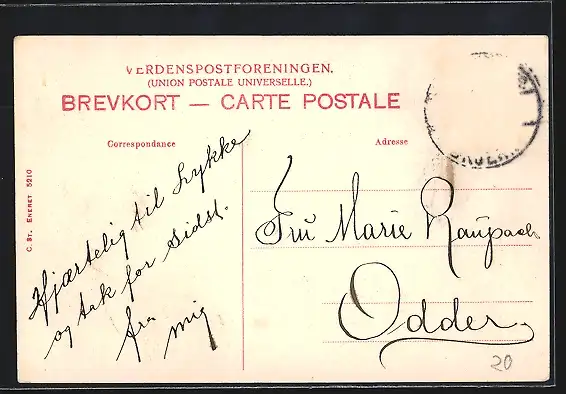 VERDENSPOSTFORENINGEN.
(UNION POSTALE UNIVERSELLE.)
BREVKORT — CARTE POSTALE
Correspondance
Adresse
C. ST. ENERET 5210
Hjærtelig til Lykke
og tak for sidst.
fra
mig
Fru Marie Raupach
Odder.
20